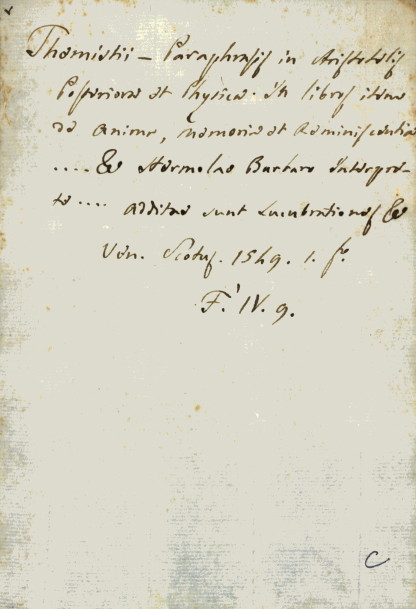 Themistii – Paraphrasis in Aristotelis
Posteriora et Physica. In libros item
de Anima, memoria et Reminiscentia
.... & Hermolao Barbaro Interpre-
te .... additae sunt Lucubrationes &
Ven. Scotus. 1549. 1. fo.
F. IV. 9.
C